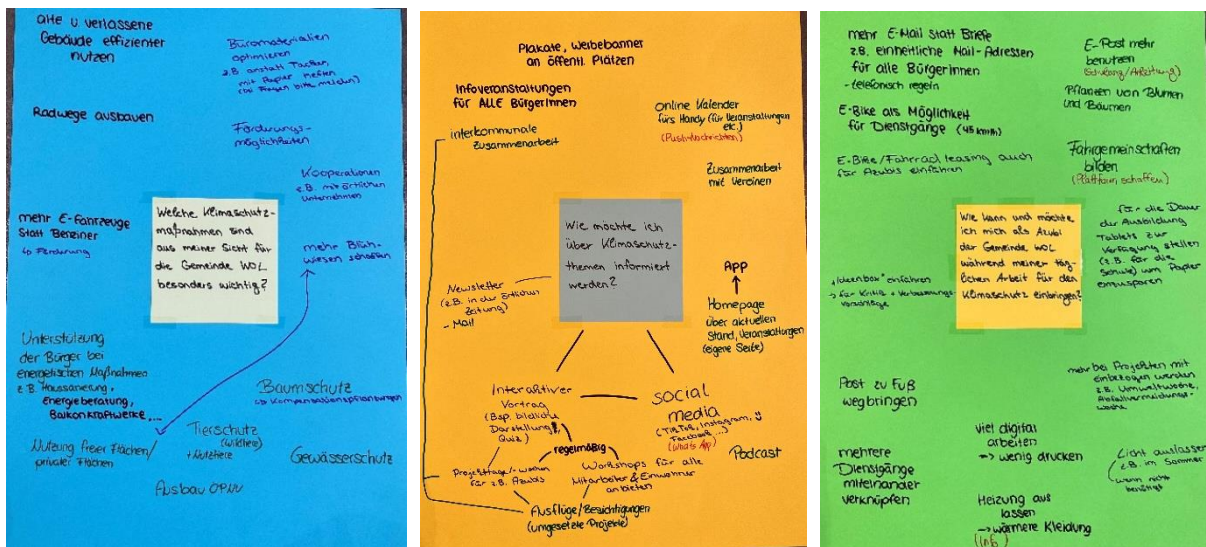 alte u. verlassene
Gebäude effizienter
nutzen
Büromaterialien
optimieren
z.B. anstatt Tacker,
mit Papier heften
(bei Fragen bitte melden)
Radwege ausbauen
Förderungs-
möglichkeiten
Kooperationen
z.B. mit örtlichen
Unternehmen
mehr E-Fahrzeuge
statt Benziner
↳ Förderung
Welche Klimaschutz-
maßnahmen sind
aus meiner Sicht für
die Gemeinde WOL
besonders wichtig?
mehr Blüh-
wiesen schaffen
Unterstützung
der Bürger bei
energetischen Maßnahmen
z.B. Haussanierung,
Energieberatung,
Balkonkraftwerke,...
Baumschutz
↳ Kompensationspflanzungen
Tierschutz
(Wildtiere)
+ Nutztiere
Nutzung freier Flächen/
privater Flächen
Gewässerschutz
Ausbau ÖPNV
Plakate, Werbebanner
an öffentl. Plätzen
Infoveranstaltungen
für ALLE BürgerInnen
interkommunale
Zusammenarbeit
online Kalender
fürs Handy (für Veranstaltungen
etc.)
(Push-Nachrichten)
Zusammenarbeit
mit Vereinen
Wie möchte ich
über Klimaschutz-
themen informiert
werden?
Newsletter
(z.B. in der örtlichen
Zeitung)
- Mail
APP
Homepage
über aktuellen
Stand, Veranstaltungen
(eigene Seite)
Interaktiver
Vortrag
(Bsp. bildliche
Darstellung,
Quiz)
social
media
(TikTok, Instagram,
Facebook ...)
(WhatsApp)
regelmäßig
Podcast
Projekttage/-wochen
für z.B. Azubis
Workshops für alle
Mitarbeiter & Einwohner
anbieten
Ausflüge/Besichtigungen
(umgesetzte Projekte)
mehr E-Mail statt Briefe
z.B. einheitliche Mail-Adressen
für alle BürgerInnen
- telefonisch regeln
E-Post mehr
benutzen
(Schulung/Anleitung)
Pflanzen von Blumen
und Bäumen
E-Bike als Möglichkeit
für Dienstgänge (45 km/h)
E-Bike/Fahrrad leasing auch
für Azubis einführen
Fahrgemeinschaften
bilden
(Plattform schaffen)
Wie kann und möchte
ich mich als Azubi
der Gemeinde WOL
während meiner täg-
lichen Arbeit für den
Klimaschutz einbringen?
für die Dauer
der Ausbildung
Tablets zur
Verfügung stellen
(z.B. für die
Schule) um Papier
einzusparen
"Ideenbox" einführen
→ für Kritik + Verbesserungs-
vorschläge
Post zu Fuß
wegbringen
mehr bei Projekten mit
einbezogen werden
z.B. Umweltwoche,
Abfallvermeidungs-
woche
viel digital
arbeiten
→ wenig drucken
mehrere
Dienstgänge
miteinander
verknüpfen
Licht auslassen
z.B. im Sommer
wenn nicht
benötigt
Heizung aus
lassen
→ wärmere Kleidung
(Info)